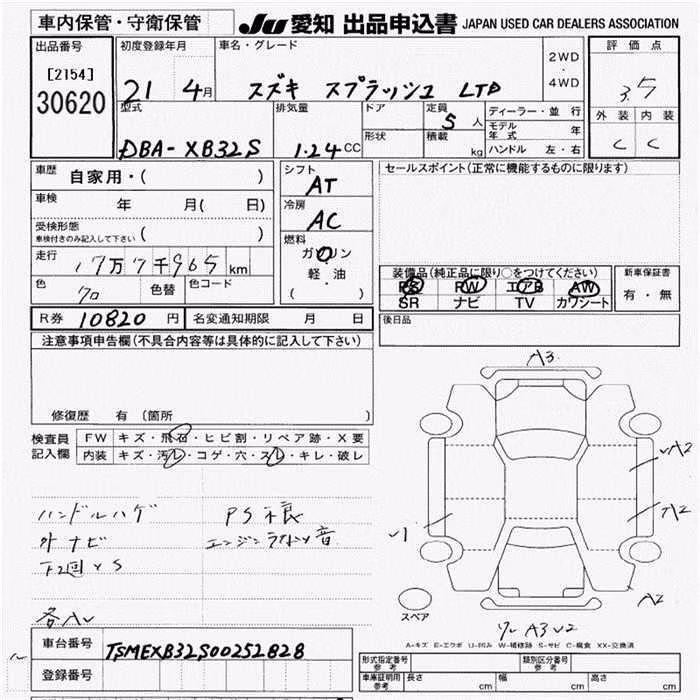 車内保管・守衛保管
JU 愛知 出品申込書 JAPAN USED CAR DEALERS ASSOCIATION
出品番号
[2154]
30620
初度登録年月
21 4月
車名・グレード
スズキ スプラッシュ LTD
2WD
・
4WD
評価点
3.5
外装 内装
C C
型式
DBA-XB32S
排気量
1.24CC
ドア
形状
定員
5人
積載
kg
ディーラー・並行
モデル年式 年
ハンドル 左・右
車歴 自家用・( )
車検 年 月( 日)
受検形態
車検付きのみ記入して下さい ( )
走行 17万7千965km
色 クロ 色替 色コード
シフト
AT
冷房
AC
燃料
ガソリン
軽・油
( )
セールスポイント(正常に機能するものに限ります)
装備品(純正品に限り○をつけてください)
PS PW エアB AW
SR ナビ TV カワシート
新車保証書
有・無
R券 10820円 名変通知期限 月 日
後日品
注意事項申告欄(不具合内容等は具体的に記入して下さい)
修復歴 有(箇所 )
検査員
記入欄
FW キズ・飛石・ヒビ割・リペア跡・X要
内装 キズ・汚レ・コゲ・穴・スレ・キレ・破レ
ハンドルハゲ PS不良
外ナビ
各AU
A3
A2
A2
スペア
A3 U2
A-キズ E-エクボ U-凹み W-補修跡 S-サビ C-腐食 XX-交換済
車台番号 TSMEXB32S00252828
登録番号
形式指定番号 参考
類別区分番号 参考
車庫証明用 参考 長さ cm 幅 cm 高さ cm